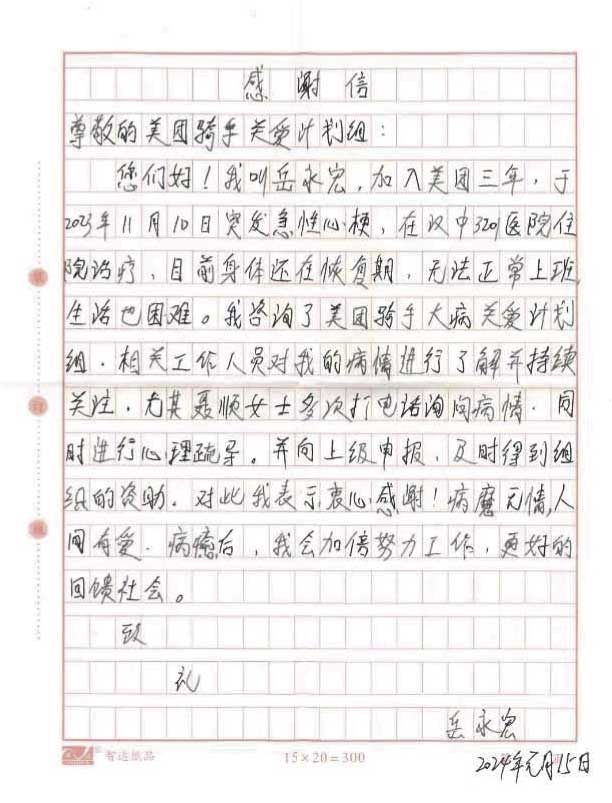 感谢信
尊敬的美团骑手关爱计划组：
您们好！我叫岳永宏，加入美团三年，于
2023年11月10日突发急性心梗，在汉中3201医院住
院治疗，目前身体还在恢复期，无法正常上班，
生活也困难。我咨询了美团骑手大病关爱计划
组，相关工作人员对我的病情进行了解并持续
关注，尤其聂顺女士多次打电话询问病情，同
时进行心理疏导。并向上级申报，及时得到组
织的资助，对此我表示衷心感谢！病魔无情，人
间有爱，病癒后，我会加倍努力工作，更好的
回馈社会。
致
礼
岳永宏
智达纸品 15×20=300
2024年元月15日